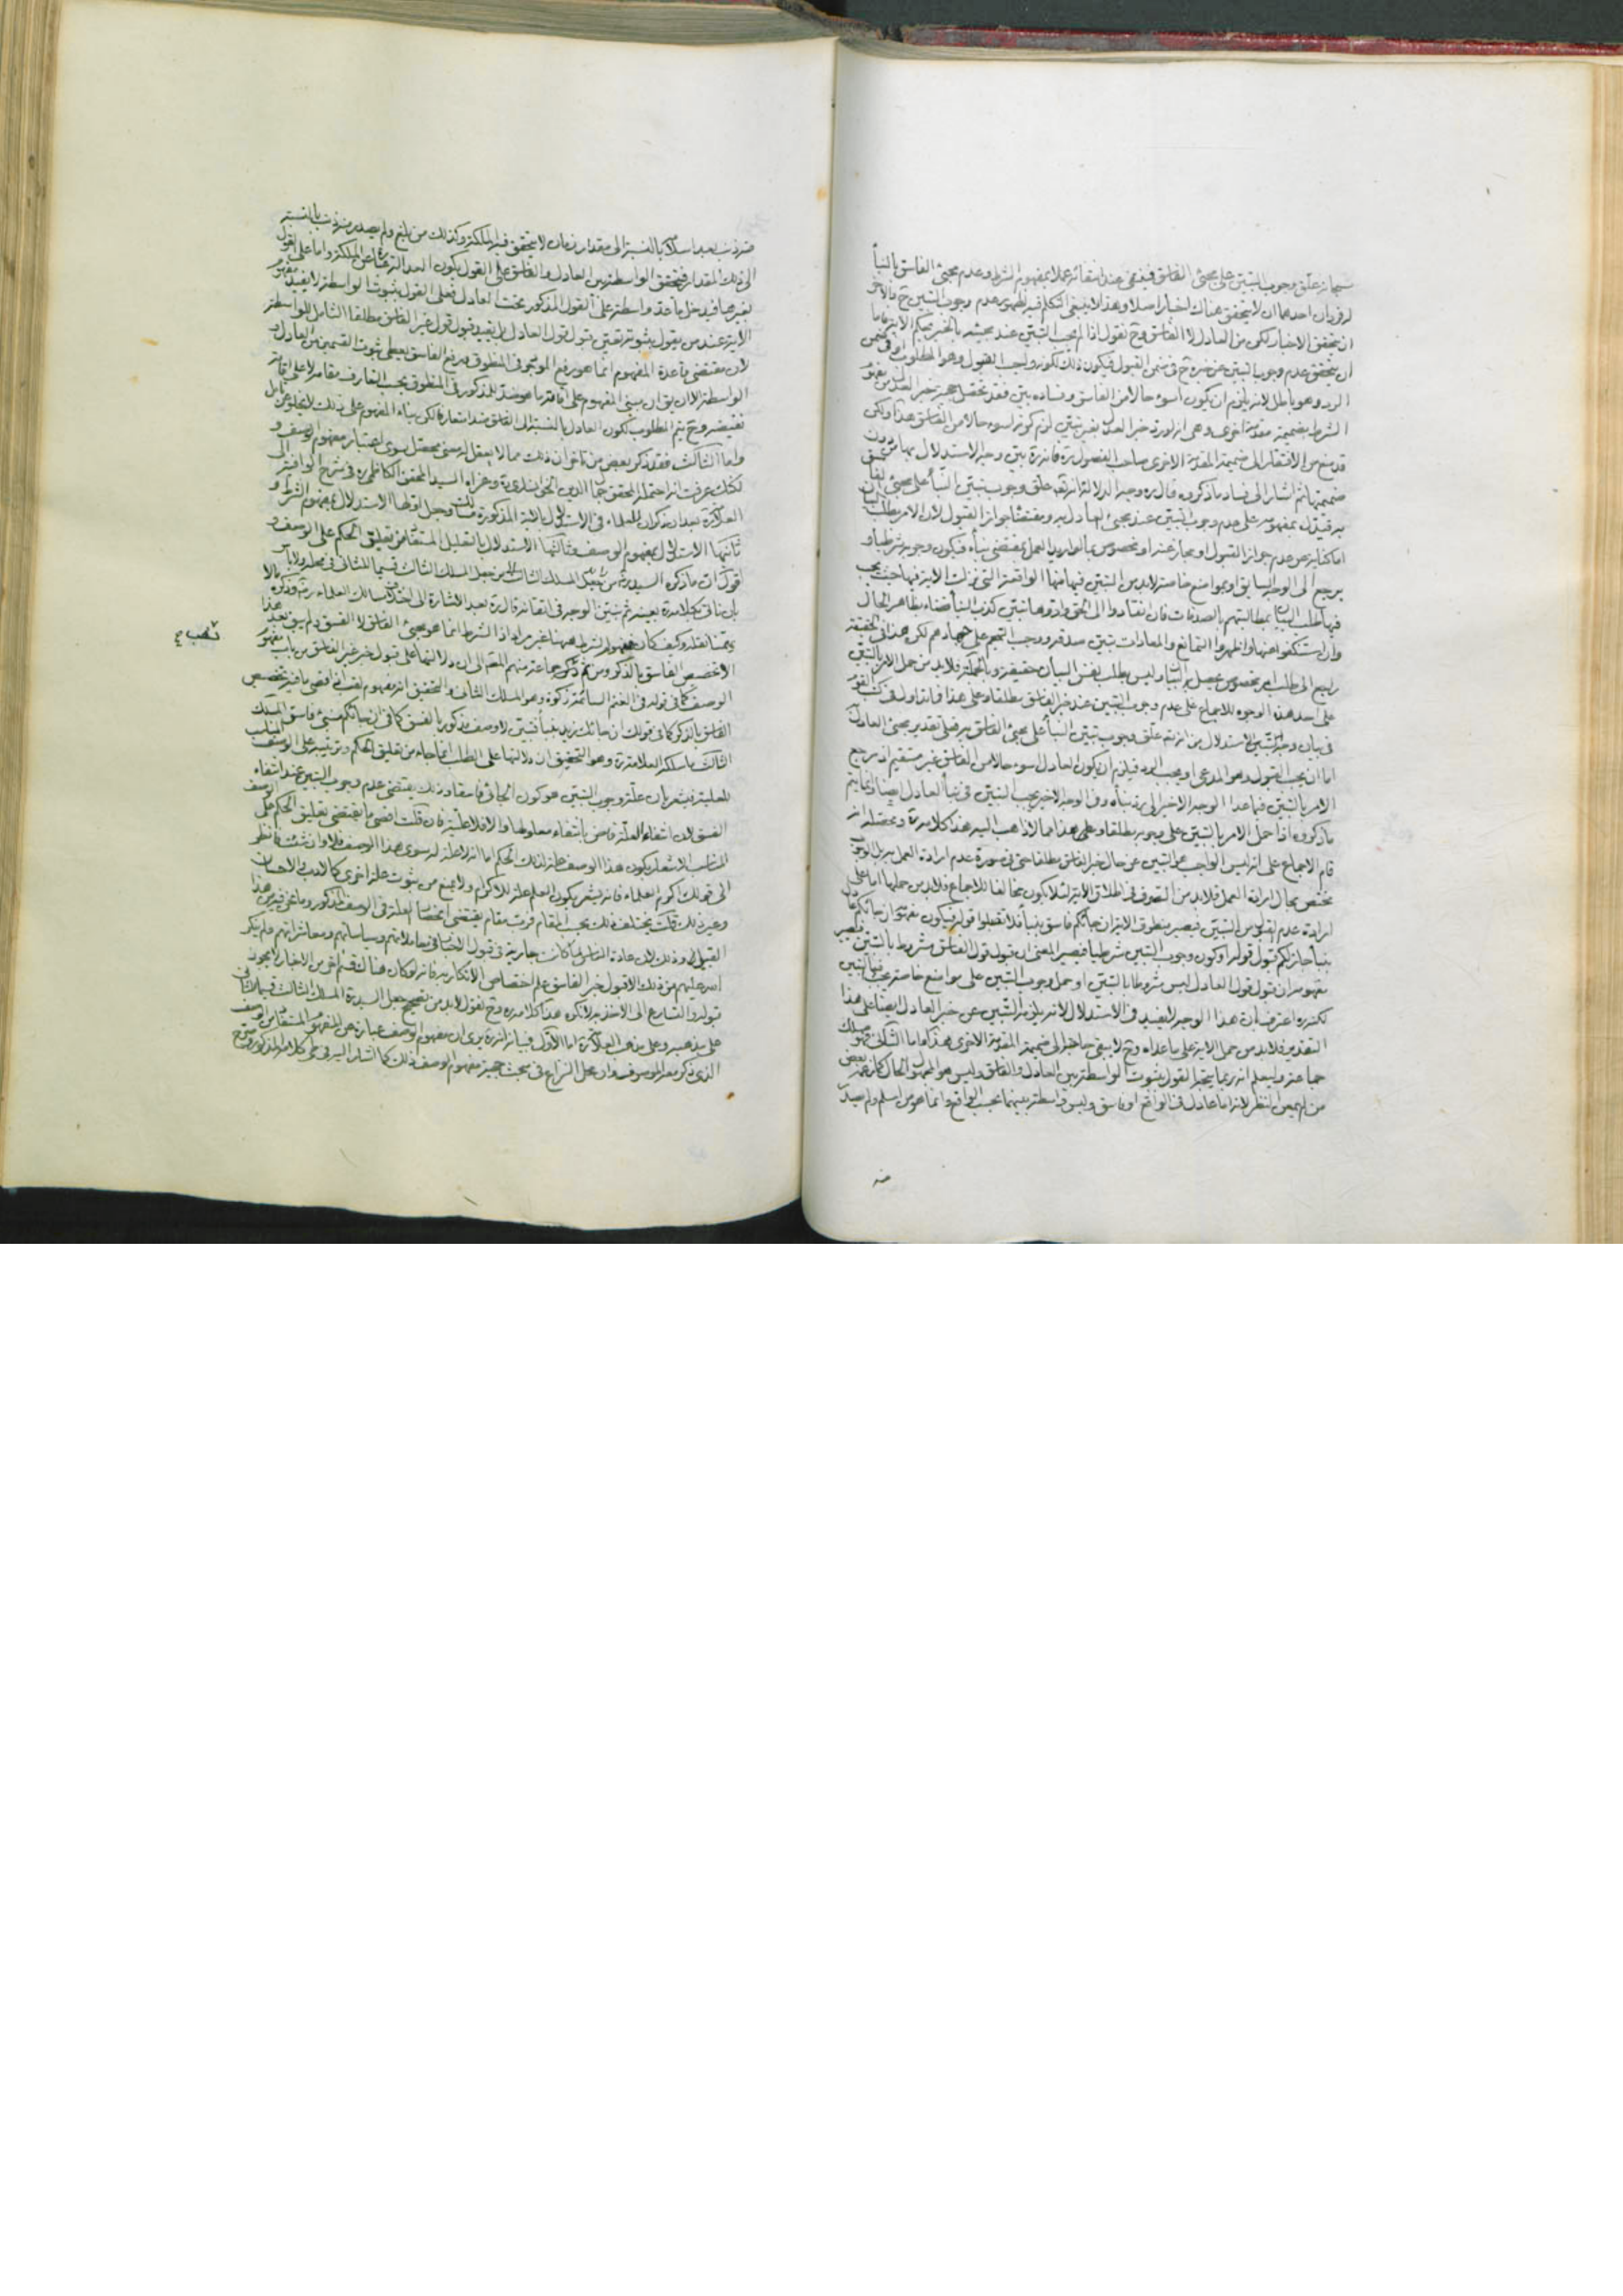 سبحانه علّق وجوب التبين على مجئ الفاسق فينتفى عند انتفائه عملا بمفهوم الشرط وعدم مجئ الفاسق بالنبأ
له فردان احدهما ان لا يتحقق هناك اخبار اصلا وهذا لا ينبغى التكلم فيه لظهور عدم وجوب التبين ح والاخر
ان يتحقق الاخبار لكن من العادل لا الفاسق وح نقول اذا لم يجب التبين عند مجيئه بالخبر بحكم الاية فاما
ان يتحقق عدم وجوب التبين عن خبره ح فى ضمن القبول فيكون ذلك واجب القبول وهو المطلوب او فى ضمن
الرد وهو باطل لانه يلزم ان يكون أسوء حالا من الفاسق وفساده بيّن فقد تحصّل حجية خبر العدل من مفهوم
الشرط بضميمة مقدمة اخرى وهى انه لو رد خبر العدل بغير تبين لزم كونه اسوء حالا من الفاسق هذا ولكن
قد منع من الافتقار الى ضميمة المقدمة الاخرى صاحب الفصول ره فانه ره بيّن وجه الاستدلال بها من دون
ضميمتها ثم اشار الى فساد ما ذكروه قال ره وجه الدلالة انه تعالى علق وجوب تبين النبأ على مجئ الفاسق
به فيدل بمفهومه على عدم وجوب التبين عند مجئ العادل به ومقتضاه جواز القبول لان الامر بطلب البيان
اما كناية عن عدم جواز القبول او مجاز عنه او مخصوص بما لو اريد العمل بمقتضى نبأه فيكون وجوبه شرطيا و
يرجع الى الوجه السابق او بمواضع خاصة لا بد من التبين فيها منها الواقعة التى نزلت الاية فيها حيث يجب
فيها طلب البيان بمطالبتهم بالصدقات فان انقادوا الى الحق وادوها تبين كذب النبأ قضاء بظاهر الحال
وان استنكفوا عنها واظهروا التمانع والمعادات تبين صدقه ووجب التجهيز على جهادهم لكن هذا فى الحقيقة
راجع الى طلب امر مخصوص يحصل به التبين وليس بطلب نفس البيان حقيقة وبالجملة فلا بد من حمل الامر بالتبين
على احد هذه الوجوه للاجماع على عدم وجوب التبين عند خبر الفاسق مطلقا وعلى هذا فما تداول فى كتب القوم
فى بيان وجه الاستدلال من انه تعالى علق وجوب تبين النبأ على مجئ الفاسق به فعلى تقدير مجئ العادل به
اما ان يجب القبول وهو المدعى او يجب الرد فيلزم ان يكون العادل اسوء حالا من الفاسق غير مستقيم اذ مرجع
الامر بالتبين فيما عدا الوجه الاخير الى رد نبأه وفى الوجه الاخير يجب التبين فى نبأ العادل ايضا وانما يتم
ما ذكروه اذا حمل الامر بالتبين على وجوبه مطلقا وعلى هذا مما لا ذاهب اليه هذا كلامه ره ومحصله انه
قام الاجماع على انه ليس الواجب هو التبين عن حال خبر الفاسق مطلقا حتى فى صورة عدم ارادة العمل به بل الوجوب
مختص بحال ارادة العمل فلا بد من التصرف فى اطلاق الاية لئلا يكون مخالفا للاجماع فلا بد من حملها اما على
ارادة عدم القبول من التبين فيصير منطوق الاية ان جائكم فاسق بنبأ فلا تقبلوا قوله فيكون مفهومه ان جائكم عادل
بنبأ جاز لكم قبول قوله او كون وجوب التبين شرطيا فيصير المعنى ان قبول قول الفاسق مشروط بالتبين فيصير
مفهومه ان قبول قول العادل ليس مشروطا بالتبين او حمل وجوب التبين على مواضع خاصة يجب فيها التبين
لكنه ره اعترف بان هذا الوجه لا يفيد فى الاستدلال لانه يلزمه التبين عن خبر العادل ايضا على هذا
التقدير فلا بد من حمل الاية على ما عداه وح لا يبقى حاجة الى ضميمة المقدمة الاخرى هذا واما الثانى فهو مسلك
جماعة وليعلم انه ربما يتخيل القول بثبوت الواسطة بين العادل والفاسق وليس هو المجهول الحال كما زعمه بعض
من لم يمعن النظر لانه اما عادل فى الواقع او فاسق وليس واسطة بينهما بحسب الواقع وانما هو من اسلم ولم يصدر
منه
منه ذنب بعد اسلامه بالنسبة الى مقدار زمان لا يتحقق فيه الملكة وكذلك من بلغ ولم يصدر منه ذنب بالنسبة
الى ذلك المقدار فيتحقق الواسطة بين العادل والفاسق على القول بكون العدالة عبارة عن الملكة واما على القول
بغيرها فيدخل ما عدّ واسطة على القول المذكور تحت العادل فعلى القول بثبوت الواسطة لا يفيد مفهوم
الاية عند من يقول بثبوته تعيين قبول قول العادل بل يفيد قبول قول غير الفاسق مطلقا الشامل للواسطة
لان مقتضى قاعدة المفهوم انما هو رفع الموجود فى المنطوق ورفع الفاسق يعطى ثبوت القسمين من العادل و
الواسطة الا ان يق ان مبنى المفهوم على اقامة ما هو ضد للمذكور فى المنطوق بحسب التعارف مقامه لا على اقامة
نقيضه وح يتم المطلوب لكون العادل بالنسبة الى الفاسق ضدا متعارفا لكن بناء المفهوم على ذلك لا يخلو عن تأمل
واما الثالث فقد ذكر بعض من تاخر ان ذلك مما لا يعقل له معنى محصل سوى اعتبار مفهوم الوصف و
لكنك عرفت انه احتمله المحقق جمال الدين الخوانسارى ره وعزاه السيد المحقق الكاظمى ره فى شرح الوافية الى
العلامة ره بعد ان ذكر ان للعلماء فى الاستدلال بالاية المذكورة مسالك وجعل اولها الاستدلال بمفهوم الشرط و
ثانيها الاستدلال بمفهوم الوصف وثالثها الاستدلال بالتعليل المستفاد من تعليق الحكم على الوصف و
اقول ان ما ذكره السيد ره من جعل المسلك الثالث قسيما للثانى فى محله ولا باس
بان ناتى بكلامه ره بعينه ثم نبين الوجه فى اتقانه قال ره بعد الاشارة الى اختلاف مسالك العلماء وذكره
الاول وكيف كان فمفهوم الشرط ههنا غير مراد اذا الشرط انما هو مجئ الفاسق لا الفسق ولم يبق بعد هذا
الا تخصيص الفاسق بالذكر ومن ثم ذكر جماعة منهم المحقق الى ان دلالتها على قبول خبر غير الفاسق من باب مفهوم
الوصف كما فى قوله فى الغنم السائمة زكوة وهو المسلك الثانى والتحقيق انه مفهوم لقب اذ اقصى ما فيه تخصيص
الفاسق بالذكر كما فى قولك ان جائك زيد بنبأ فتبين لا وصف مذكور بالفسق كما فى ان جائكم منبئ فاسق المسلك
الثالث ما سلكه العلامة ره وهو التحقيق ان دلالتها على المطلب انما جاء من تعليق الحكم وترتيبه على الوصف المناسب
للعلية فيشعر بان علة وجوب التبين هو كون الجائى فاسقا وذلك يقتضى عدم وجوب التبين عند انتفاء
الفسق لان انتفاء العلة قاض بانتفاء معلولها والا فلا علية فان قلت اقصى ما يقتضى تعليق الحكم على الوصف
المناسب الاشعار بكون هذا الوصف علة لذلك الحكم اما انه لا علة له سوى هذا الوصف فلا وان شئت فانظر
الى قولك اكرم العلماء فانه يشعر بكون العلم علة للاكرام ولا يمنع من ثبوت علة اخرى كالادب والاحسان
وغير ذلك قلت يختلف ذلك بحسب المقام فرب مقام يقتضى انحصار العلة فى الوصف المذكور وما نحن فيه من هذا
القبيل وذلك لان عادة الناس لما كانت جارية فى قبول الاخبار فى معاملاتهم وسياساتهم ومعاشراتهم ولم ينكر
الله عليهم من ذلك الا قبول خبر الفاسق علم اختصاص الانكار به فانه لو كان هناك قسم اخر من الاخبار لا يجوز
قبوله والتسارع الى الاخذ به لانكره هذا كلامه ره وح نقول لا بد من تصحيح جعل السيد ره المسلك الثالث قسيما للثانى
على مذهبه وعلى مذهب العلامة ره اما الاول فبيانه انه ره يرى ان مفهوم الوصف عبارة عن المفهوم المستفاد من الوصف
الذى ذكر معه الموصوف وان محل النزاع فى مبحث حجية مفهوم الوصف ذلك كما اشار اليه فى طى كلامه المذكور وصرح